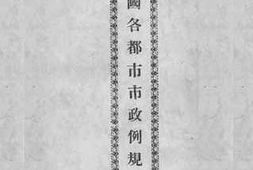 國各都市市政例規